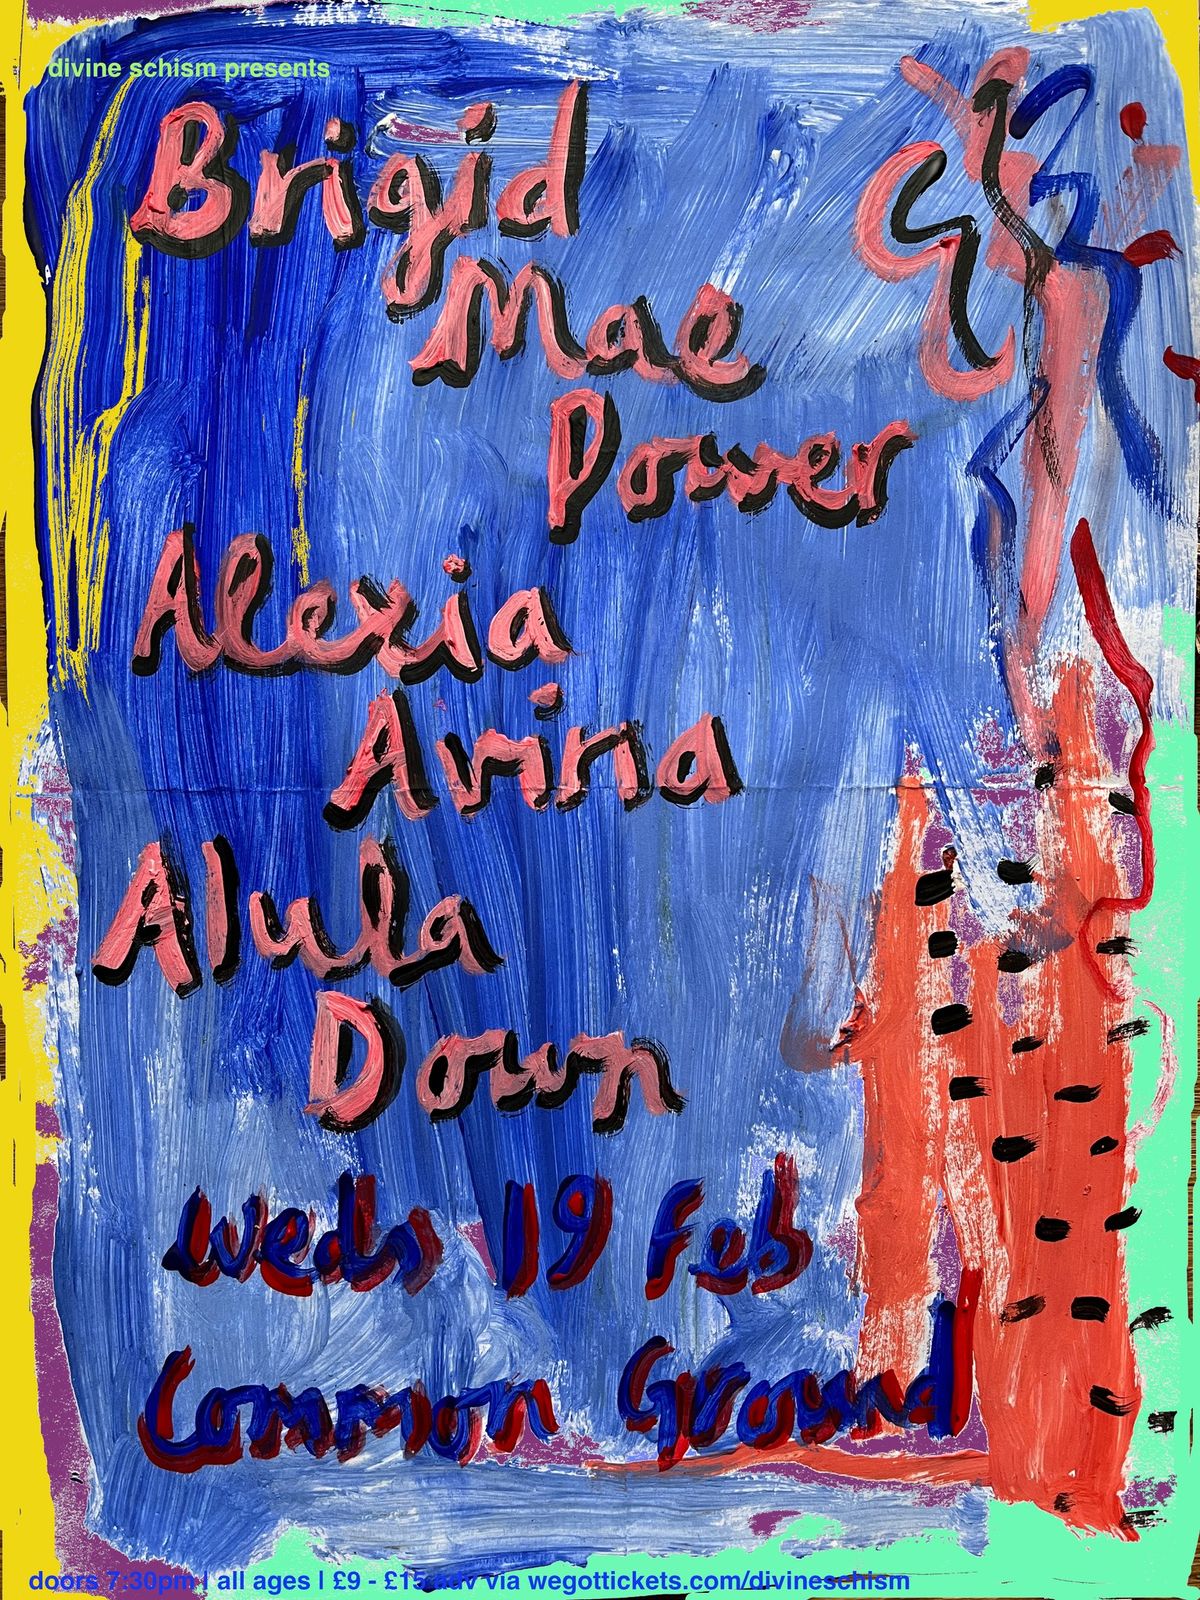 divine schism presents
Brigid
Mae
Power
Alexia
Avina
Alula
Down
Weds 19 Feb
Common Ground
doors 7:30pm | all ages | £9 - £15 adv via wegottickets.com/divineschism